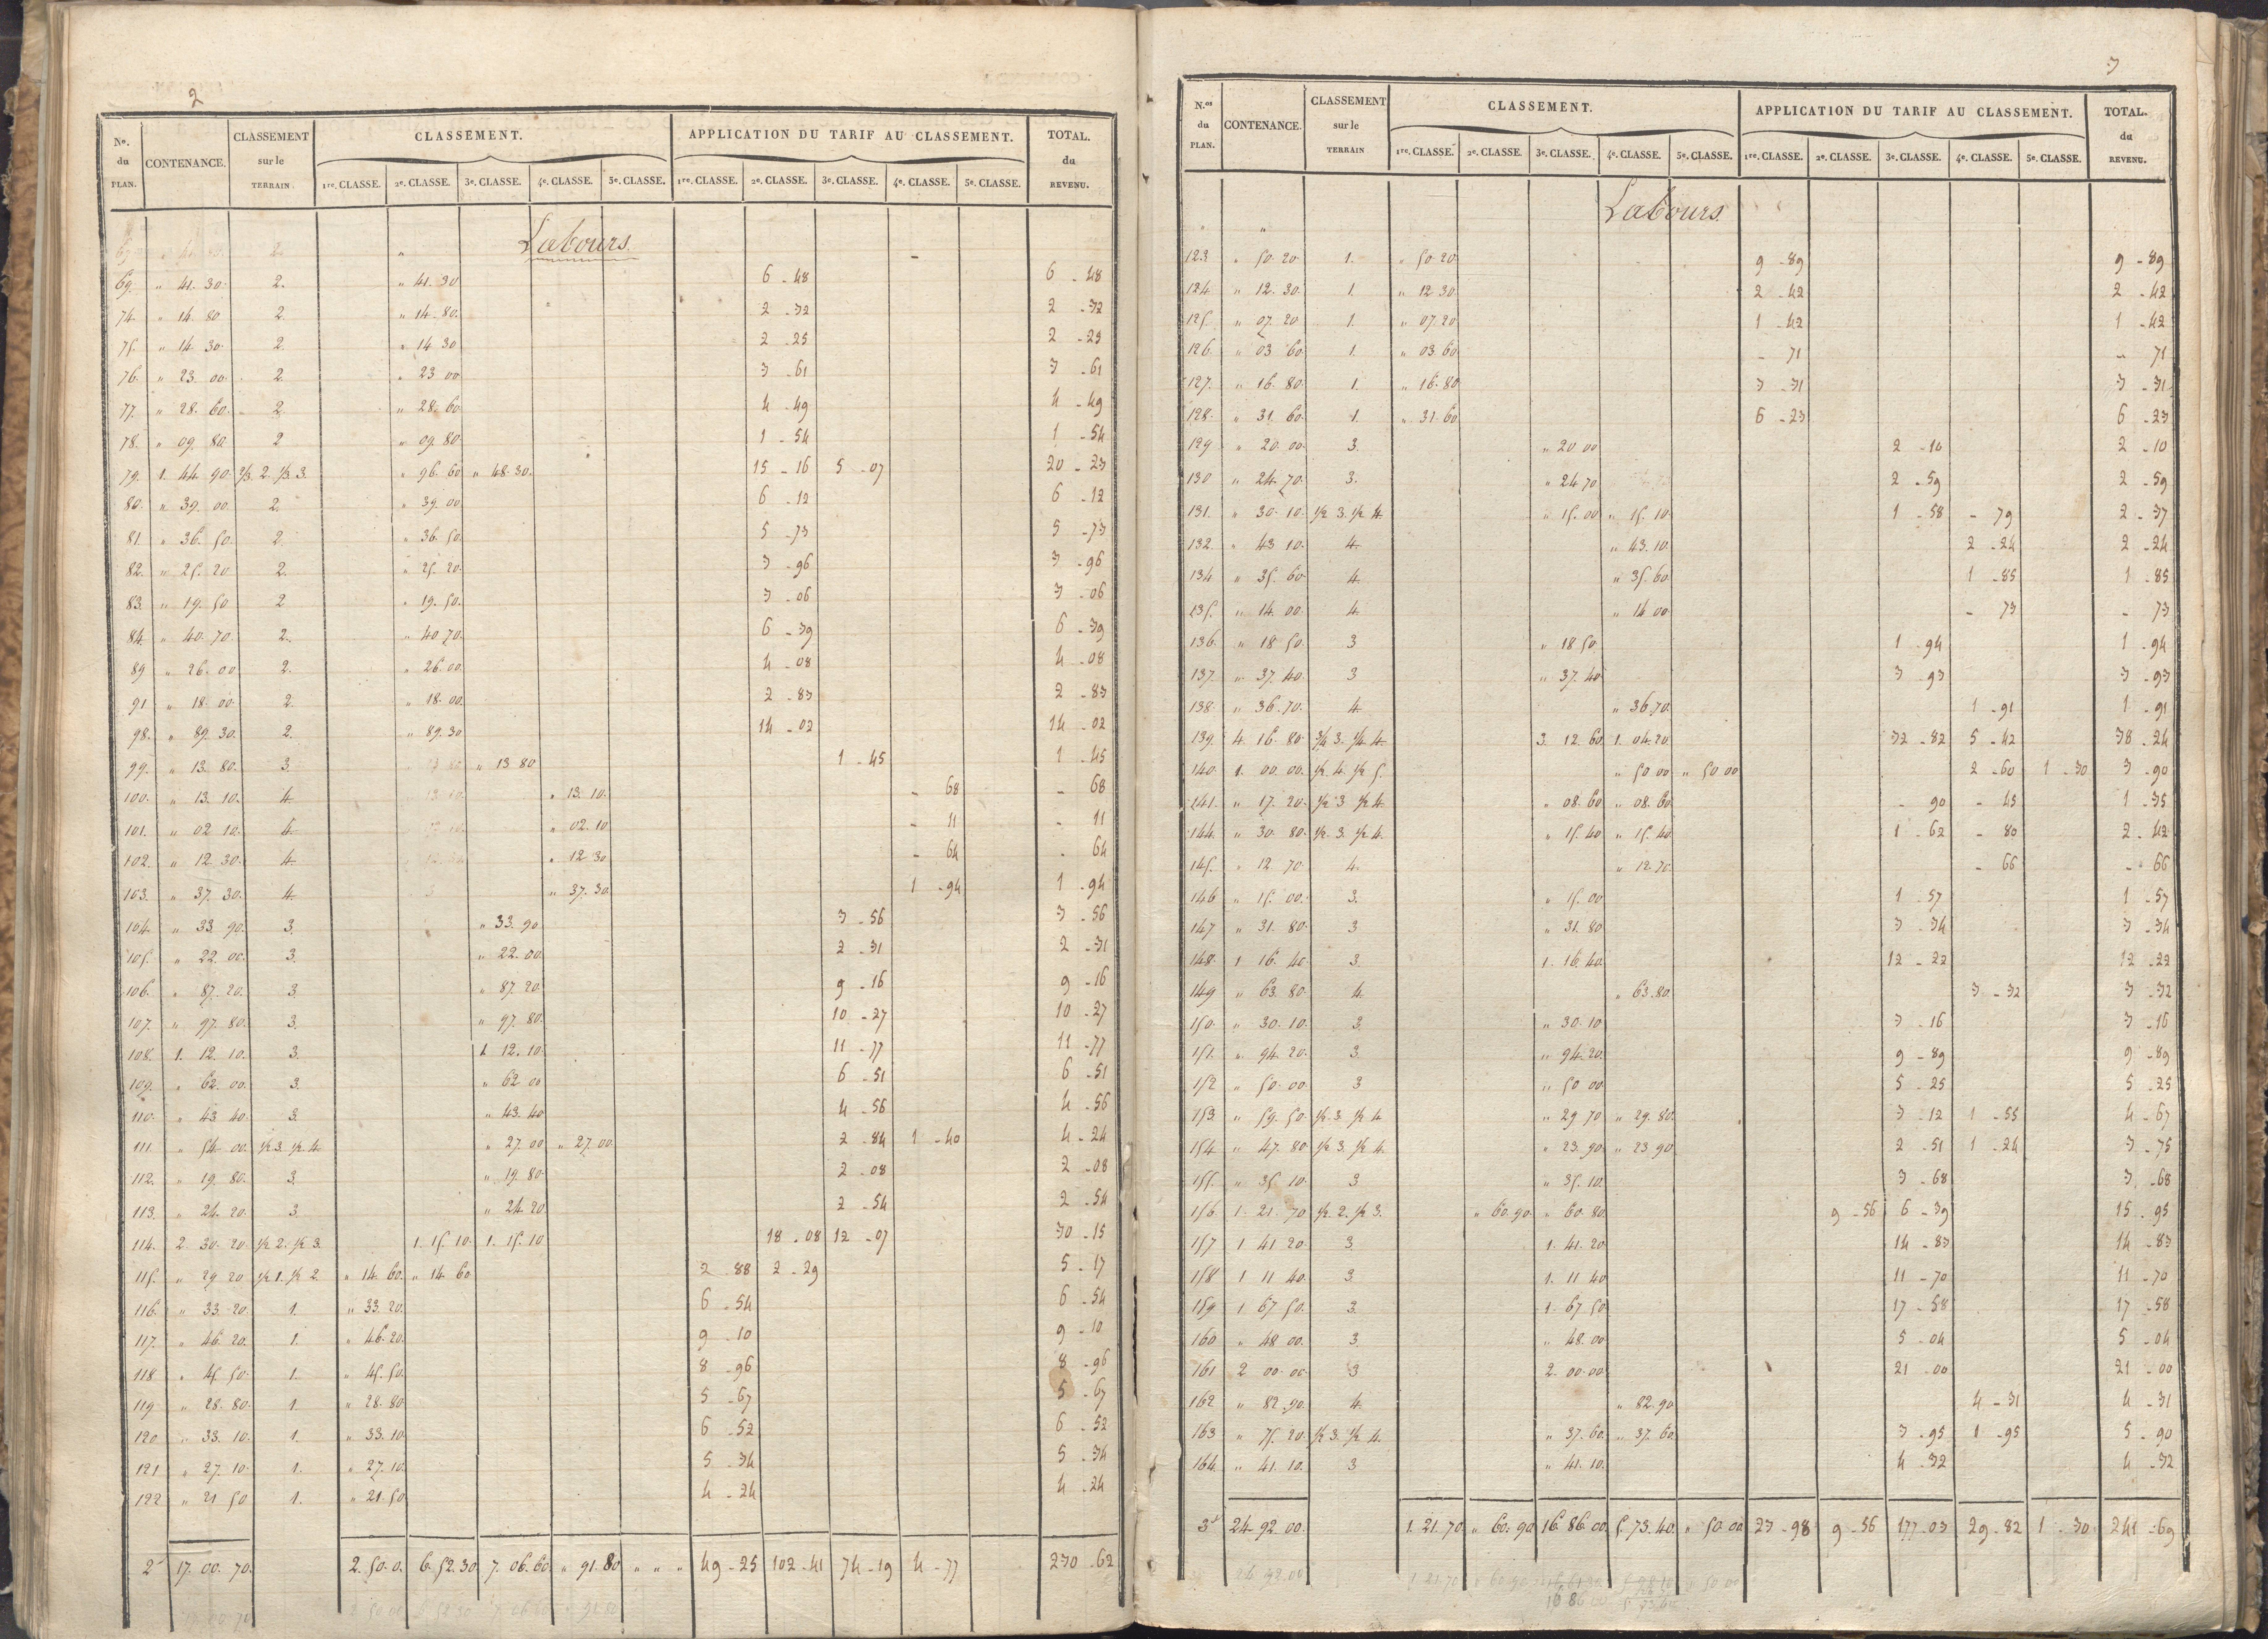 2
No. du PLAN. CONTENANCE. CLASSEMENT sur le TERRAIN. CLASSEMENT. APPLICATION DU TARIF AU CLASSEMENT. TOTAL. du REVENU.
1re. CLASSE. 2e. CLASSE. 3e. CLASSE. 4e. CLASSE. 5e. CLASSE. 1re. CLASSE. 2e. CLASSE. 3e. CLASSE. 4e. CLASSE. 5e. CLASSE.
Labours.
69. " 41. 30. 2. " 41. 30 6 - 48 6 - 48
74. " 14. 80 2. " 14. 80. 2 - 32 2 - 32
75. " 14 30. 2. " 14 30 2 - 25 2 - 25
76. " 23. 00. 2. " 23 00 3 - 61 3 - 61
77. " 28. 60. 2. " 28. 60 4 - 49 4 - 49
78. " 09. 80. 2 " 09. 80. 1 - 54 1 - 54
79. 1. 44. 90. 2/3. 2. 1/3. 3. " 96. 60 " 48. 30. 15 - 16 5 - 07 20 - 23
80. " 39. 00. 2. " 39. 00 6 - 12 6 - 12
81. " 36. 50. 2. " 36. 50. 5 - 73 5 - 73
82. " 25. 20 2. " 25. 20. 3 - 96 3 - 96
83. " 19. 50 2 " 19. 50. 3 - 06 3 - 06
84. " 40. 70. 2. " 40 70. 6 - 39 6 - 39
89 " 26. 00 2. " 26. 00. 4 - 08 4 - 08
91 " 18. 00. 2. " 18. 00. 2 - 83 2 - 83
98. " 89. 30. 2. " 89. 30 14 - 02 14 - 02
99. " 13. 80. 3. " 13 80 1 - 45 1 - 45
100. " 13. 10. 4. " 13. 10. - 68 - 68
101. " 02 10. 4. " 02. 10 - 11 - 11
102. " 12 30. 4. " 12 30 - 64 - 64
103. " 37. 30. 4. " 37. 30. 1 - 94 1 - 94
104. " 33. 90. 3. " 33. 90 3 - 56 3 - 56
105. " 22. 00. 3. " 22. 00. 2 - 31 2 - 31
106. " 87. 20. 3 " 87. 20. 9 - 16 9 - 16
107. " 97. 80. 3. " 97. 80. 10 - 27 10 - 27
108. 1. 12. 10. 3. 1. 12. 10. 11 - 77 11 - 77
109. " 62. 00. 3. " 62 00 6 - 51 6 - 51
110. " 43 40. 3. " 43. 40 4 - 56 4 - 56
111 " 54. 00. 1/2 3. 1/2 4. " 27. 00 " 27. 00. 2 - 84 1 - 40 4 - 24
112. " 19. 80. 3. " 19. 80. 2 - 08 2 - 08
113. " 24. 20. 3. " 24. 20 2 - 54 2 - 54
114. 2. 30. 20. 1/2 2. 1/2 3. 1. 15. 10. 1. 15. 10 18 - 08 12 - 07 30 - 15
115. " 29 20 1/2 1. 1/2 2. " 14. 60. " 14 60 2 - 88 2 - 29 5 - 17
116. " 33. 20. 1. " 33. 20. 6 - 54 6 - 54
117. " 46. 20. 1. " 46. 20. 9 - 10 9 - 10
118 " 45. 50. 1. " 45. 50. 8 - 96 8 - 96
119 " 28. 80. 1. " 28. 80. 5 - 67 5 - 67
120 " 33. 10. 1. " 33. 10. 6 - 52 6 - 52
121 " 27. 10. 1. " 27. 10. 5 - 34 5 - 34
122 " 21 50 1. " 21. 50. 4 - 24 4 - 24
17. 00. 70. 2. 50. 0. 6. 52. 30 7. 06. 60. " 91. 80 " " " 49 - 25 102 - 41 74 - 19 4 - 77 230 - 62
3
N.os du PLAN. CONTENANCE. CLASSEMENT sur le TERRAIN CLASSEMENT. APPLICATION DU TARIF AU CLASSEMENT. TOTAL. du REVENU.
1re. CLASSE. 2e. CLASSE. 3e. CLASSE. 4e. CLASSE. 5e. CLASSE. 1re. CLASSE. 2e. CLASSE. 3e. CLASSE. 4e. CLASSE. 5e. CLASSE.
Labours.
123. " 50. 20. 1. " 50. 20 9 - 89 9 - 89
124. " 12. 30. 1. " 12 30. 2 - 42 2 - 42
125. " 07. 20 1. " 07. 20 1 - 42 1 - 42
126. " 03 60. 1. " 03. 60 - 71 - 71
127. " 16. 80. 1. " 16. 80 3 - 31 3 - 31
128. " 31. 60. 1. " 31. 60 6 - 23 6 - 23
129 " 20. 00. 3. " 20 00 2 - 10 2 - 10
130 " 24. 70. 3. " 24 70 2 - 59 2 - 59
131. " 30. 10. 1/2 3. 1/2 4. " 15. 00 " 15. 10. 1 - 58 - 79 2 - 37
132. " 43 10. 4. " 43. 10. 2 - 24 2 - 24
134. " 35. 60. 4. " 35. 60. 1 - 85 1 - 85
135. " 14. 00. 4. " 14 00. - 73 - 73
136. " 18 50. 3 " 18 50. 1 - 94 1 - 94
137. " 37. 40. 3 " 37. 40. 3 - 93 3 - 93
138. " 36. 70. 4. " 36. 70. 1 - 91 1 - 91
139. 4. 16. 80. 3/4 3. 1/4 4. 3. 12. 60 1. 04. 20 32 - 82 5 - 42 38 - 24
140. 1. 00. 00. 1/2 4. 1/2 5. " 50 00 " 50 00 2 - 60 1 - 30 3 - 90
141. " 17. 20. 1/2 3 1/2 4. " 08. 60 " 08. 60. - 90 - 45 1 - 35
144. " 30. 80. 1/2. 3. 1/2 4. " 15. 40 " 15. 40. 1 - 62 - 80 2 - 42
145. " 12 70. 4. " 12. 70. - 66 - 66
146 " 15. 00. 3. " 15. 00 1 - 57 1 - 57
147 " 31. 80. 3 " 31. 80 3 - 34 3 - 34
148. 1 16. 40. 3. 1. 16. 40. 12 - 22 12 - 22
149 " 63. 80. 4. " 63. 80. 3 - 32 3 - 32
150. " 30. 10. 3. " 30. 10 3 - 16 3 - 16
151. " 94. 20. 3. " 94. 20. 9 - 89 9 - 89
152 " 50. 00. 3 " 50 00 5 - 25 5 - 25
153. " 59. 50. 1/2. 3 1/2 4 " 29 70 " 29. 80. 3 - 12 1 - 55 4 - 67
154 " 47. 80 1/2 3. 1/2 4. " 23. 90 " 23 90. 2 - 51 1 - 24 3 - 75
155. " 35. 10. 3 " 35. 10. 3 - 68 3 - 68
156 1. 21. 70 1/2. 2. 1/2 3. " 60. 90. " 60. 80. 9 - 56 6 - 39 15 - 95
157 1 41 20. 3. 1. 41. 20 14 - 83 14 - 83
158 1 11 40. 3. 1. 11 40 11 - 70 11 - 70
159 1 67 50. 3. 1. 67. 50 17 - 58 17 - 58
160 " 48 00. 3 " 48. 00 5 - 04 5 - 04
161 2 00 00. 3 2. 00. 00. 21 - 00 21 - 00
162 " 82. 90. 4. " 82. 90. 4 - 31 4 - 31
163 " 75. 20. 1/2 3. 1/2 4. " 37. 60. " 37. 60 3 - 95 1 - 95 5 - 90
164. " 41. 10. 3 " 41. 10. 4 - 32 4 - 32
24. 92. 00. 1. 21. 70. " 60. 90 16. 86. 00. 5. 73. 40. " 50. 00 23 - 98 9 - 56 177 - 03 29 - 82 1 - 30 241 - 69